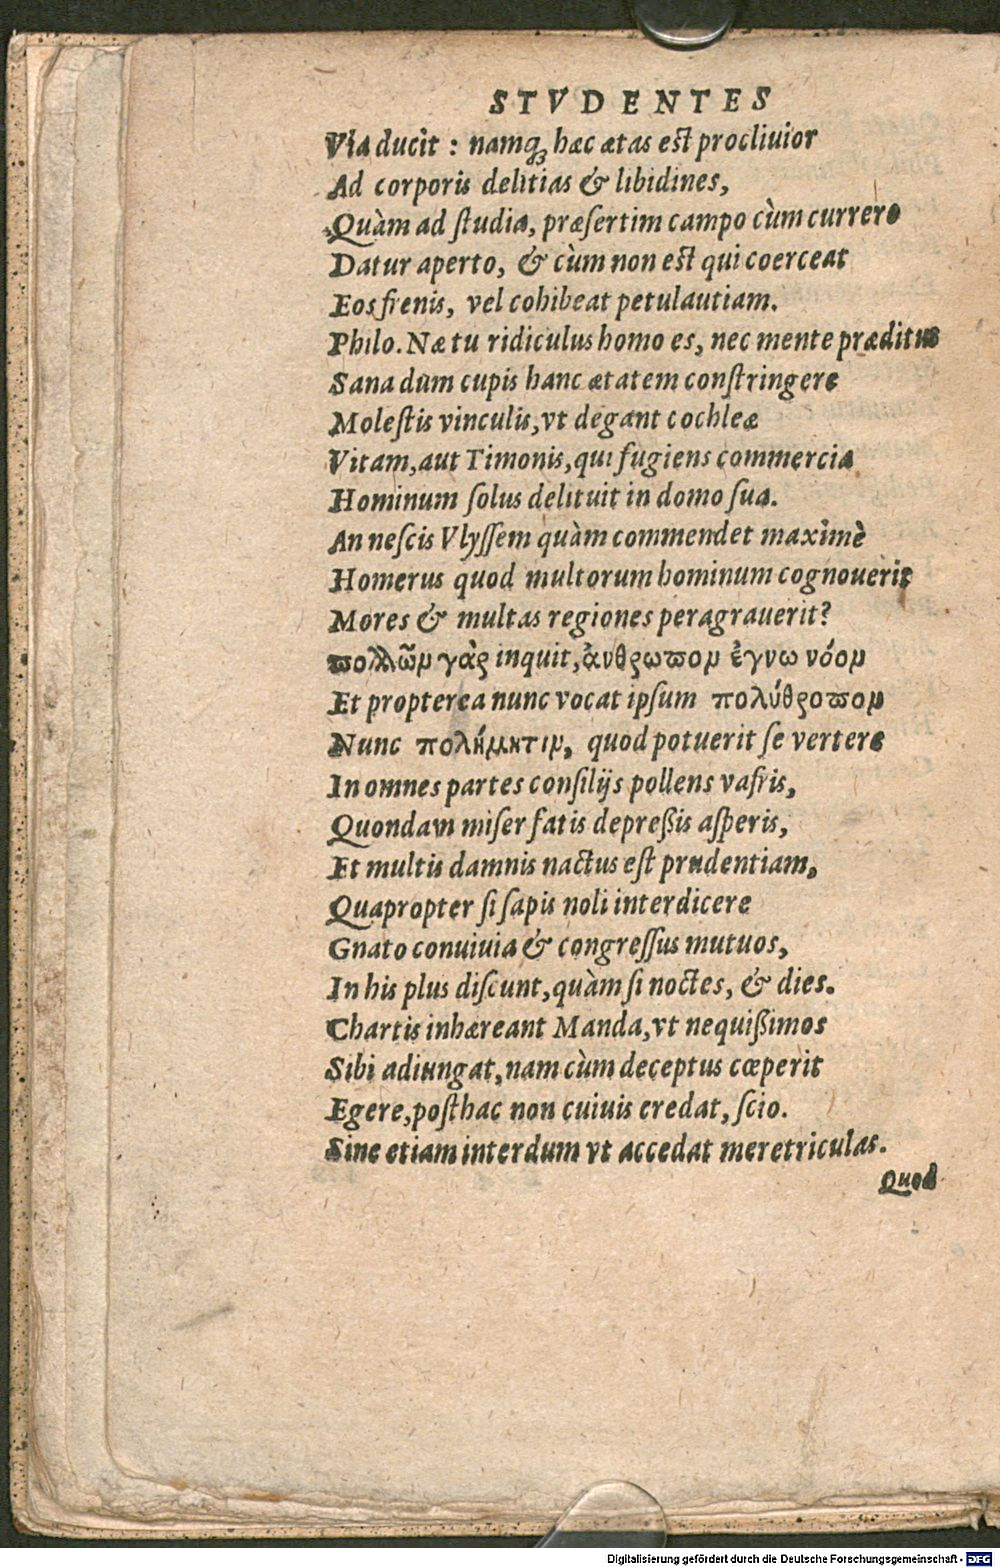 STVDENTES
Via ducit : namq; hæc ætas est procliuior
Ad corporis delitias & libidines,
Quàm ad ſtudia, præſertim campo cùm currere
Datur aperto, & cùm non est qui coerceat
Eos frenis, vel cohibeat petulautiam.
Philo. Næ tu ridiculus homo es, nec mente præditus
Sana dum cupis hanc ætatem conſtringere
Moleſtis vinculis, vt degant cochleæ
Vitam, aut Timonis, qui fugiens commercia
Hominum ſolus delituit in domo ſua.
An neſcis Vlyſſem quàm commendet maximè
Homerus quod multorum hominum cognouerit
Mores & multas regiones peragrauerit?
πολλῶμ γὰρ inquit, ἀνθρωπομ ἐγνω νόομ
Et propterea nunc vocat ipſum πολύθροπομ
Nunc πολήμητιμ, quod potuerit ſe vertere
In omnes partes conſilijs pollens vafris,
Quondam miſer fatis depreßis aſperis,
Et multis damnis nactus eſt prudentiam,
Quapropter ſi ſapis noli interdicere
Gnato conuiuia & congreſſus mutuos,
In his plus diſcunt, quàm ſi noctes, & dies.
Chartis inhæreant Manda, vt nequißimos
Sibi adiungat, nam cùm deceptus cœperit
Egere, poſthac non cuiuis credat, ſcio.
Sine etiam interdum vt accedat meretriculas.
Quod
Digitalisierung gefördert durch die Deutsche Forschungsgemeinschaft - DFG